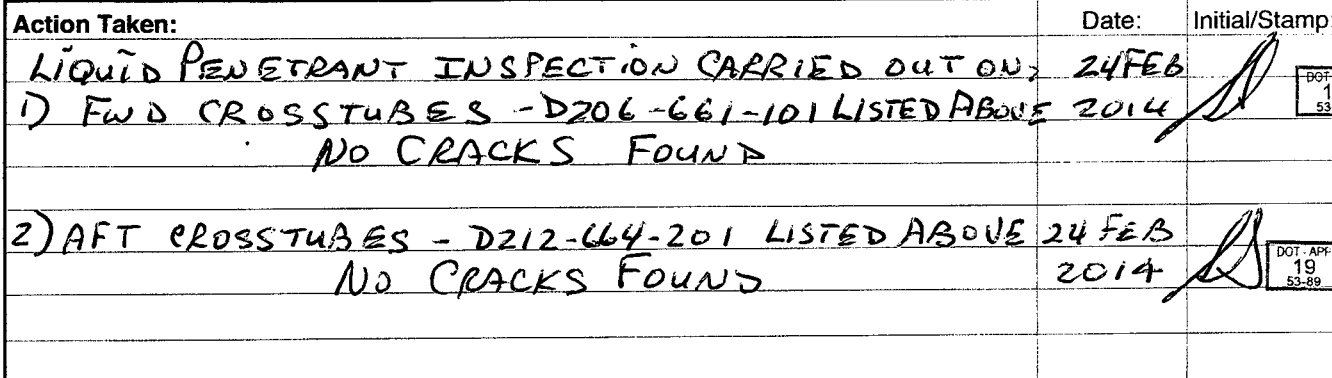 Action Taken: Date: Initial/Stamp:
LIQUID PENETRANT INSPECTION CARRIED OUT ON: 24 FEB
1) FWD CROSSTUBES - D206-661-101 LISTED ABOVE 2014
NO CRACKS FOUND
DOT
1
53
2) AFT CROSSTUBES - D212-664-201 LISTED ABOVE 24 FEB
NO CRACKS FOUND 2014
DOT-APP
19
53-89